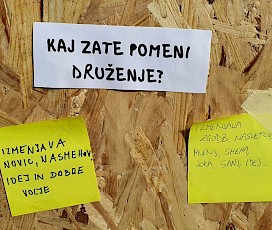 KAJ ZATE POMENI
DRUŽENJE?
IZMENJAVA
NOVIC, NASMEHOV,
IDEJ IN DOBRE
VOLJE
IZMENJAVA
ZGODB, NASVETOV
MNENJ, SMEHA,
IDEJ...